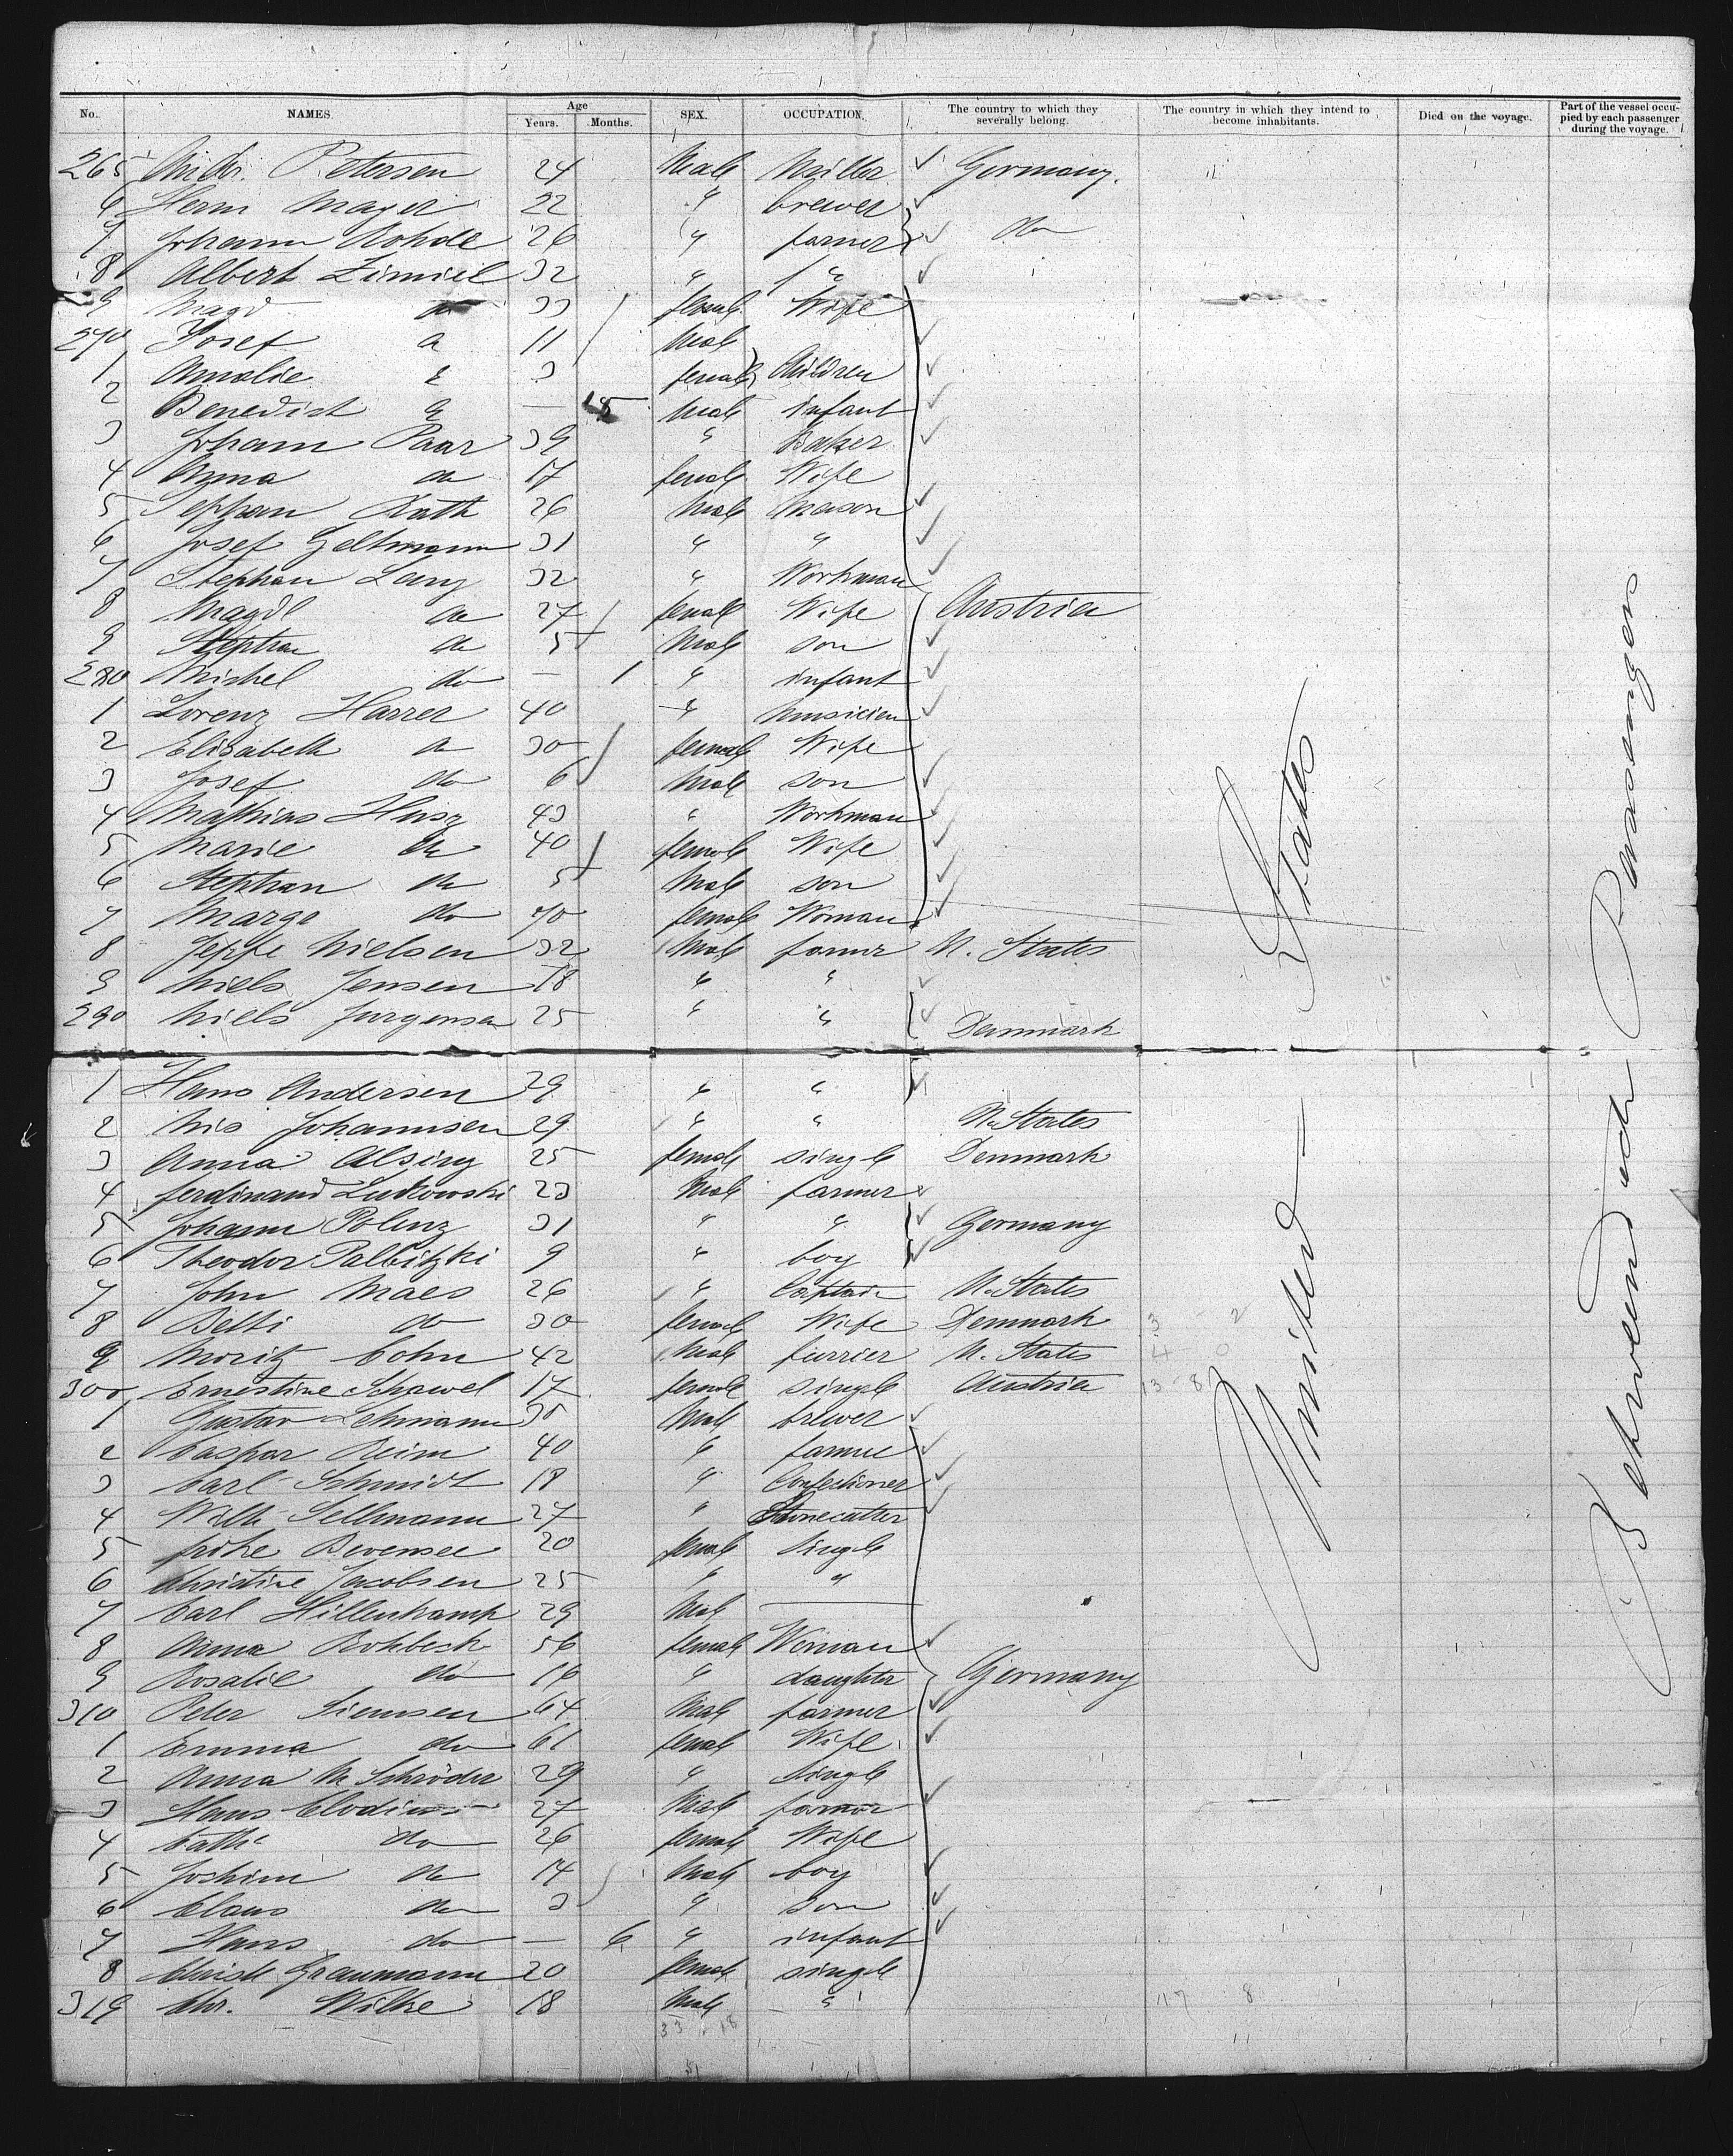 No. NAMES. Age Years. Months. SEX. OCCUPATION. The country to which they severally belong. The country in which they intend to become inhabitants. Died on the voyage. Part of the vessel occupied by each passenger during the voyage.
265 Petersen 24 Male Miller Germany.
6 Herm Mayer 22 " brewer
7 Johann Rohde 26 " farmer do
8 Albert Zimiel 32 " "
9 Magd do 33 female Wife
270 Josef do 11 Male
1 Amalie do 3 female Children
2 Benedict do — Male infant
3 Johann Paar 39 " Baker
4 Anna do 17 female Wife
5 Stephan Rath 26 Male Mason
6 Josef Geltmann 31 " "
7 Stephan Lang 32 " Workman
8 Magdl do 27 female Wife Austria
9 Stephan do 5 Male son
280 Michel do — 1 " infant
1 Lorenz Harrer 40 " Musicien
2 Elisabeth do 30 female Wife
3 Josef do 6 Male son
4 Mathias Husz 43 " Workman
5 Marie do 40 female Wife
6 Stephan do 5 Male son
7 Marga do 70 female Woman
8 Jeppe Nielsen 32 Male farmer U. States
9 Niels Jensen 18 " "
290 Niels Jurgensen 25 " " Denmark
1 Hans Andersen 29 " "
2 Nis Johannsen 29 " " U. States
3 Anna Alsing 25 female single Denmark
4 Ferdinand Lutkowski 23 Male farmer
5 Johann Polenz 31 " " Germany
6 Theodor Palbitzki 9 " boy
7 John Maes 26 " Captain U. States
8 Betti do 30 female Wife Denmark 3 2
9 Moritz Cohn 42 Male furrier U. States 4 0
300 Ernestine Schawel 17 female single Austria 13 8
1 Gustav Lehmann 35 Male brewer
2 Caspar Reim 40 " farmer
3 Carl Schmidt 18 " Confectioner
4 Wilh Sellmann 27 " Stonecutter
5 Bevensee 20 female single
6 Christine Jacobsen 25 " "
7 Carl Hillenkamp 29 Male —
8 Anna Rohbeck 56 female Woman
9 Rosalie do 16 " daughter Germany
310 Peter Siemsen 64 Male farmer
1 Emma do 61 female Wife
2 Anna M Schröder 29 " single
3 Hans Clodius 27 Male farmer
4 Cath do 26 female Wife
5 Jochim do 14 Male boy
6 Claus do 3 " son
7 Hans do — 6 " infant
8 Christ Graumann 20 female single
319 Chr. Wilke 18 Male "
33 18
117 8
United States
Between deck Passengers